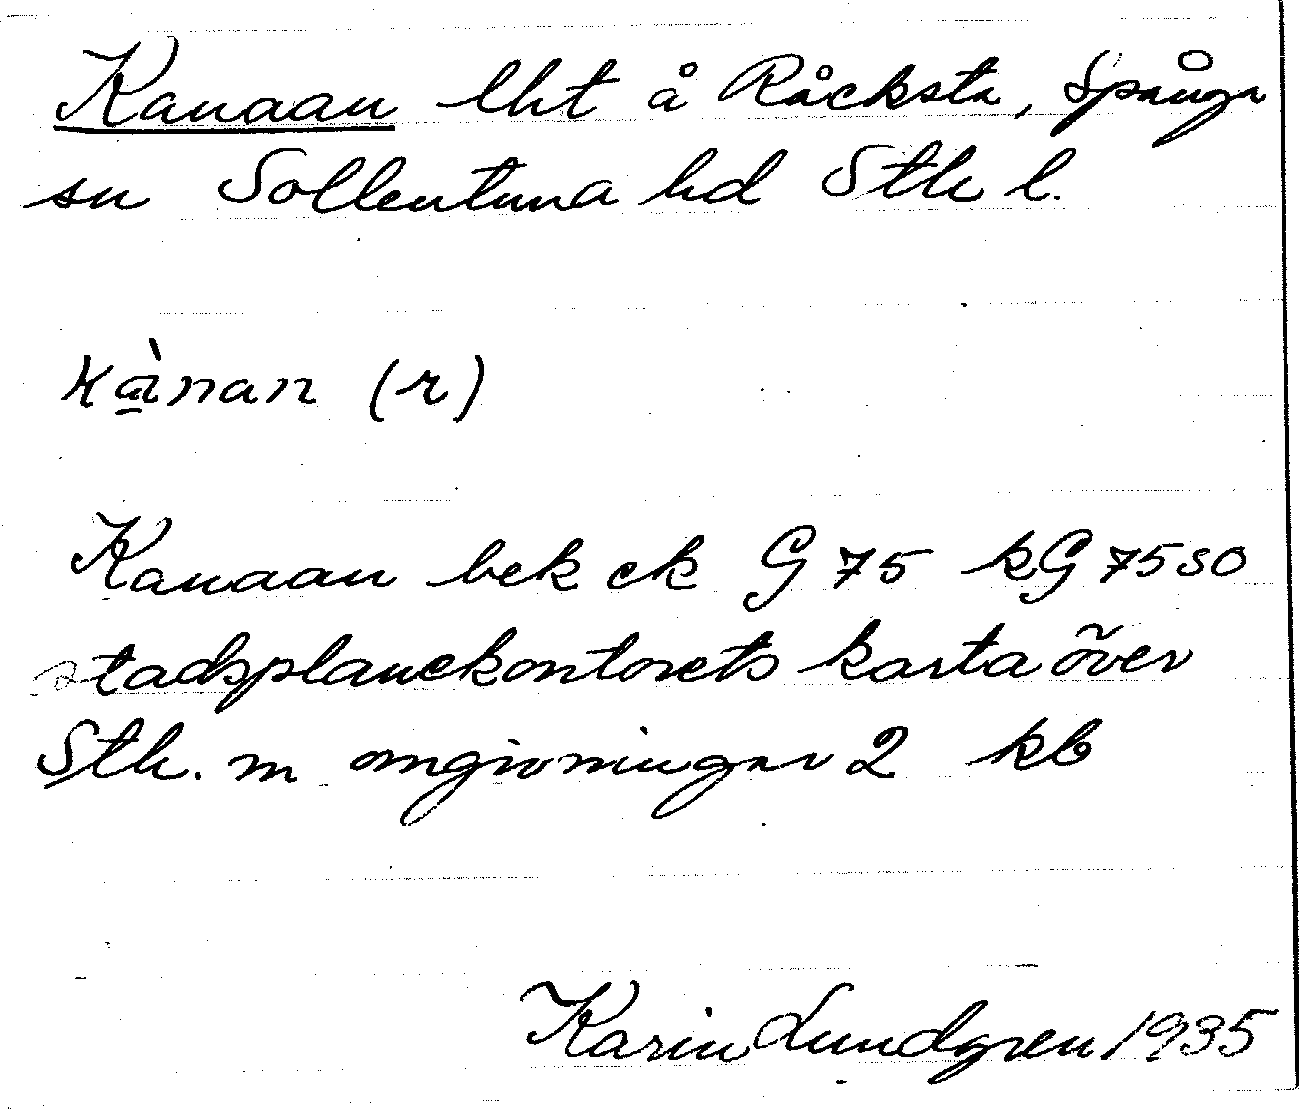 Kanaan lht å Råcksta, Spånga
sn Sollentuna hd Sth l.
kà̱nan (r)
Kanaan bek ek G 75 kG 75 SO
stadsplanekontorets karta över
Sth. m omgivningar 2 kb
Karin Lundgren 1935